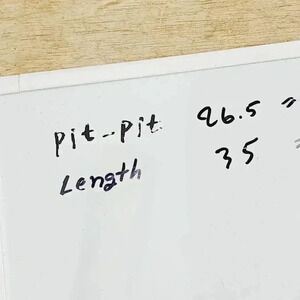 Pit-Pit 26.5"
Length 35